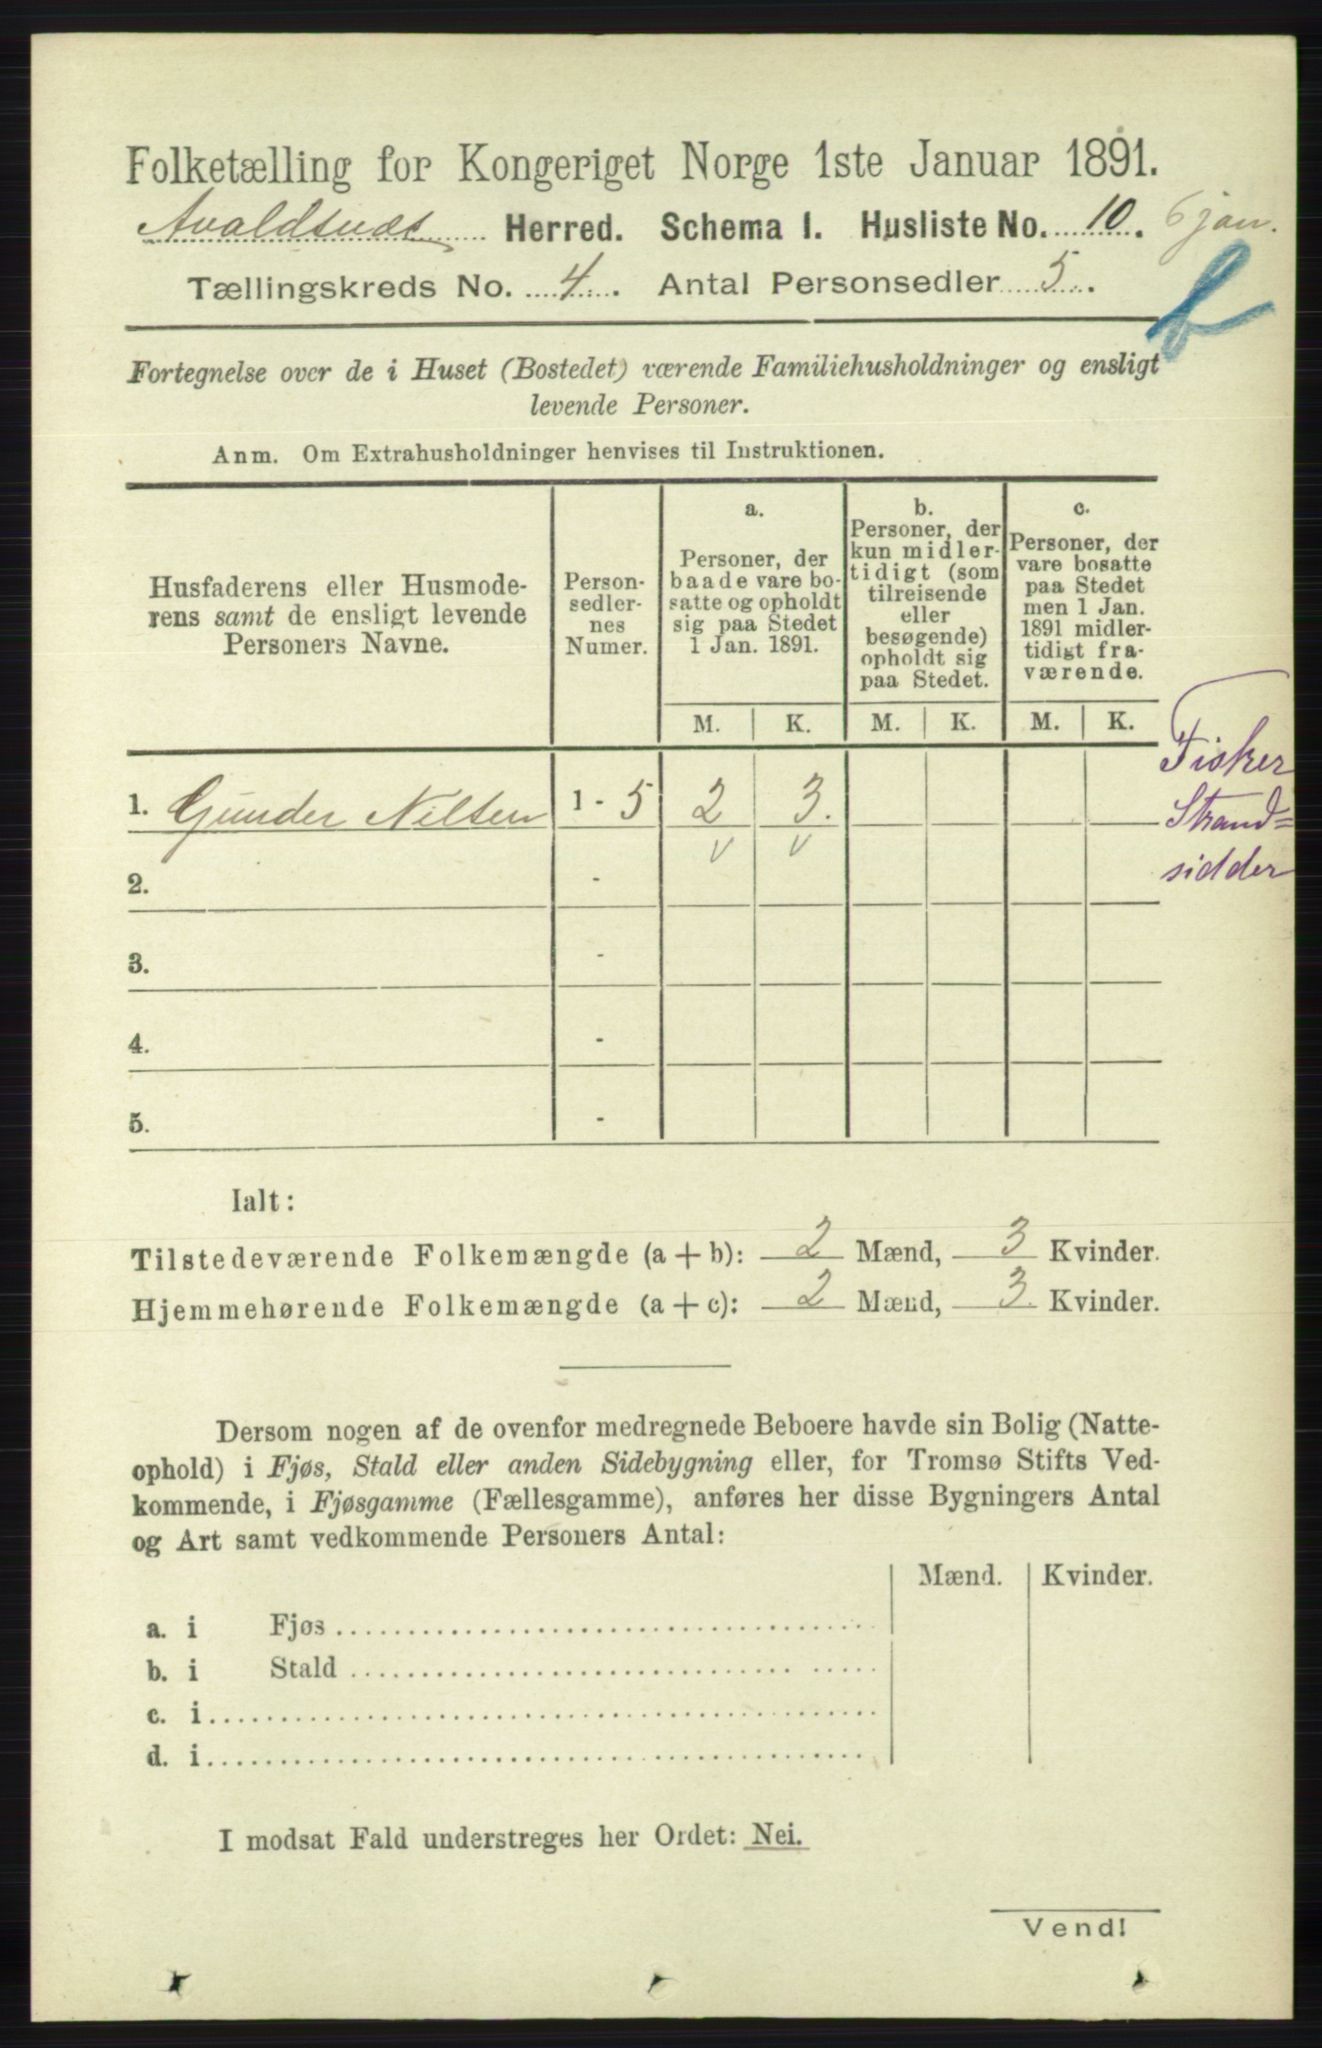 Folketælling for Kongeriget Norge 1ste Januar 1891.
Avaldsnes Herred. Schema I. Husliste No. 10. 6 jan.
Tællingskreds No. 4. Antal Personsedler 5.
Fortegnelse over de i Huset (Bostedet) værende Familiehusholdninger og ensligt
levende Personer.
Anm. Om Extrahusholdninger henvises til Instruktionen.
Husfaderens eller Husmode-
rens samt de ensligt levende
Personers Navne.
Person-
sedler-
nes
Numer.
a.
Personer, der
baade vare bo-
satte og opholdt
sig paa Stedet
1 Jan. 1891.
b.
Personer, der
kun midler-
tidigt (som
tilreisende
eller
besøgende)
opholdt sig
paa Stedet.
c.
Personer, der
vare bosatte
paa Stedet
men 1 Jan.
1891 midler-
tidigt fra-
værende.
M. K. M. K. M. K.
1. Gunder Nilsen 1 - 5 2 3.
v v
Fisker
Strand=
sidder
2. -
3. -
4. -
5. -
Ialt:
Tilstedeværende Folkemængde (a + b): 2 Mænd, 3 Kvinder.
Hjemmehørende Folkemængde (a + c): 2 Mænd, 3. Kvinder.
Dersom nogen af de ovenfor medregnede Beboere havde sin Bolig (Natte-
ophold) i Fjøs, Stald eller anden Sidebygning eller, for Tromsø Stifts Ved-
kommende, i Fjøsgamme (Fællesgamme), anføres her disse Bygningers Antal
og Art samt vedkommende Personers Antal:
Mænd. Kvinder.
a. i Fjøs
b. i Stald
c. i
d. i
I modsat Fald understreges her Ordet: Nei.
Vend!